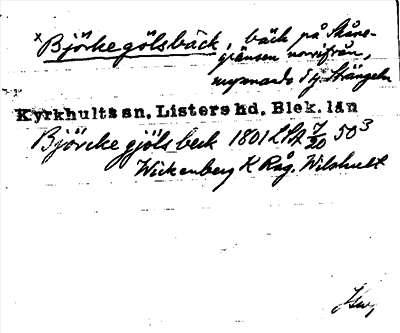 × Björkegölsbäck, bäck på Skåne-
gränsen norrifrån,
mynnande i sj. Strängeln
Kyrkhults sn. Listers hd. Blek. län
Björcke gjöls beck 1801 LSA 7/20 50³
Wickenberg K Råg. Wilshult